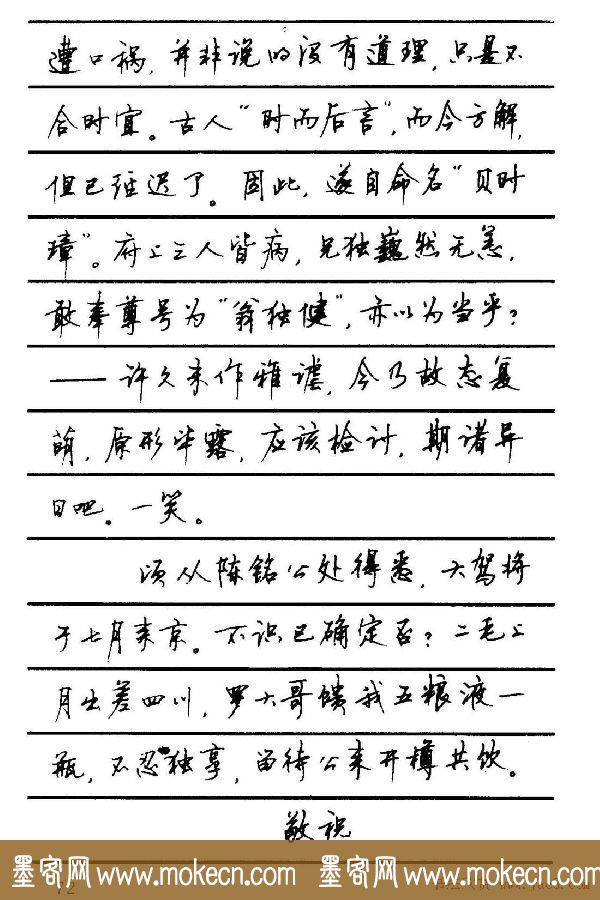 遭口祸，并非说的没有道理，只是不
合时宜。古人“时而后言”，而今方解，
但已经迟了。因此，遂自命名“贝时
璋”。府上三人皆病，兄独巍然无恙，
敢奉尊号为“翁独健”，亦以为当乎？
——许久未作雅谑，今乃故态复
萌，原形毕露，应该检讨，期诸异
日吧。一笑。
顷从陈铭公处得悉，大驾将
于七月来京。不识已确定否？二毛上
月出差四川，罗大哥馈我五粮液一
瓶，不忍独享，留待公来开樽共饮。
敬祝
墨客网 www.mokecn.com 墨客网 www.mokecn.com